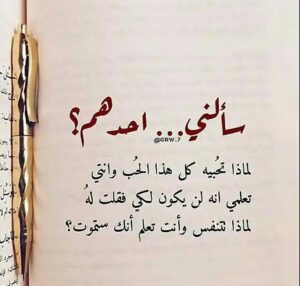 سألني... احدهم؟
@GRW_7
لماذا تحُبيه كل هذا الحُب وانتي
تعلمي انه لن يكون لكي فقلت لهُ
لماذا تتنفس وأنت تعلم أنك ستموت؟